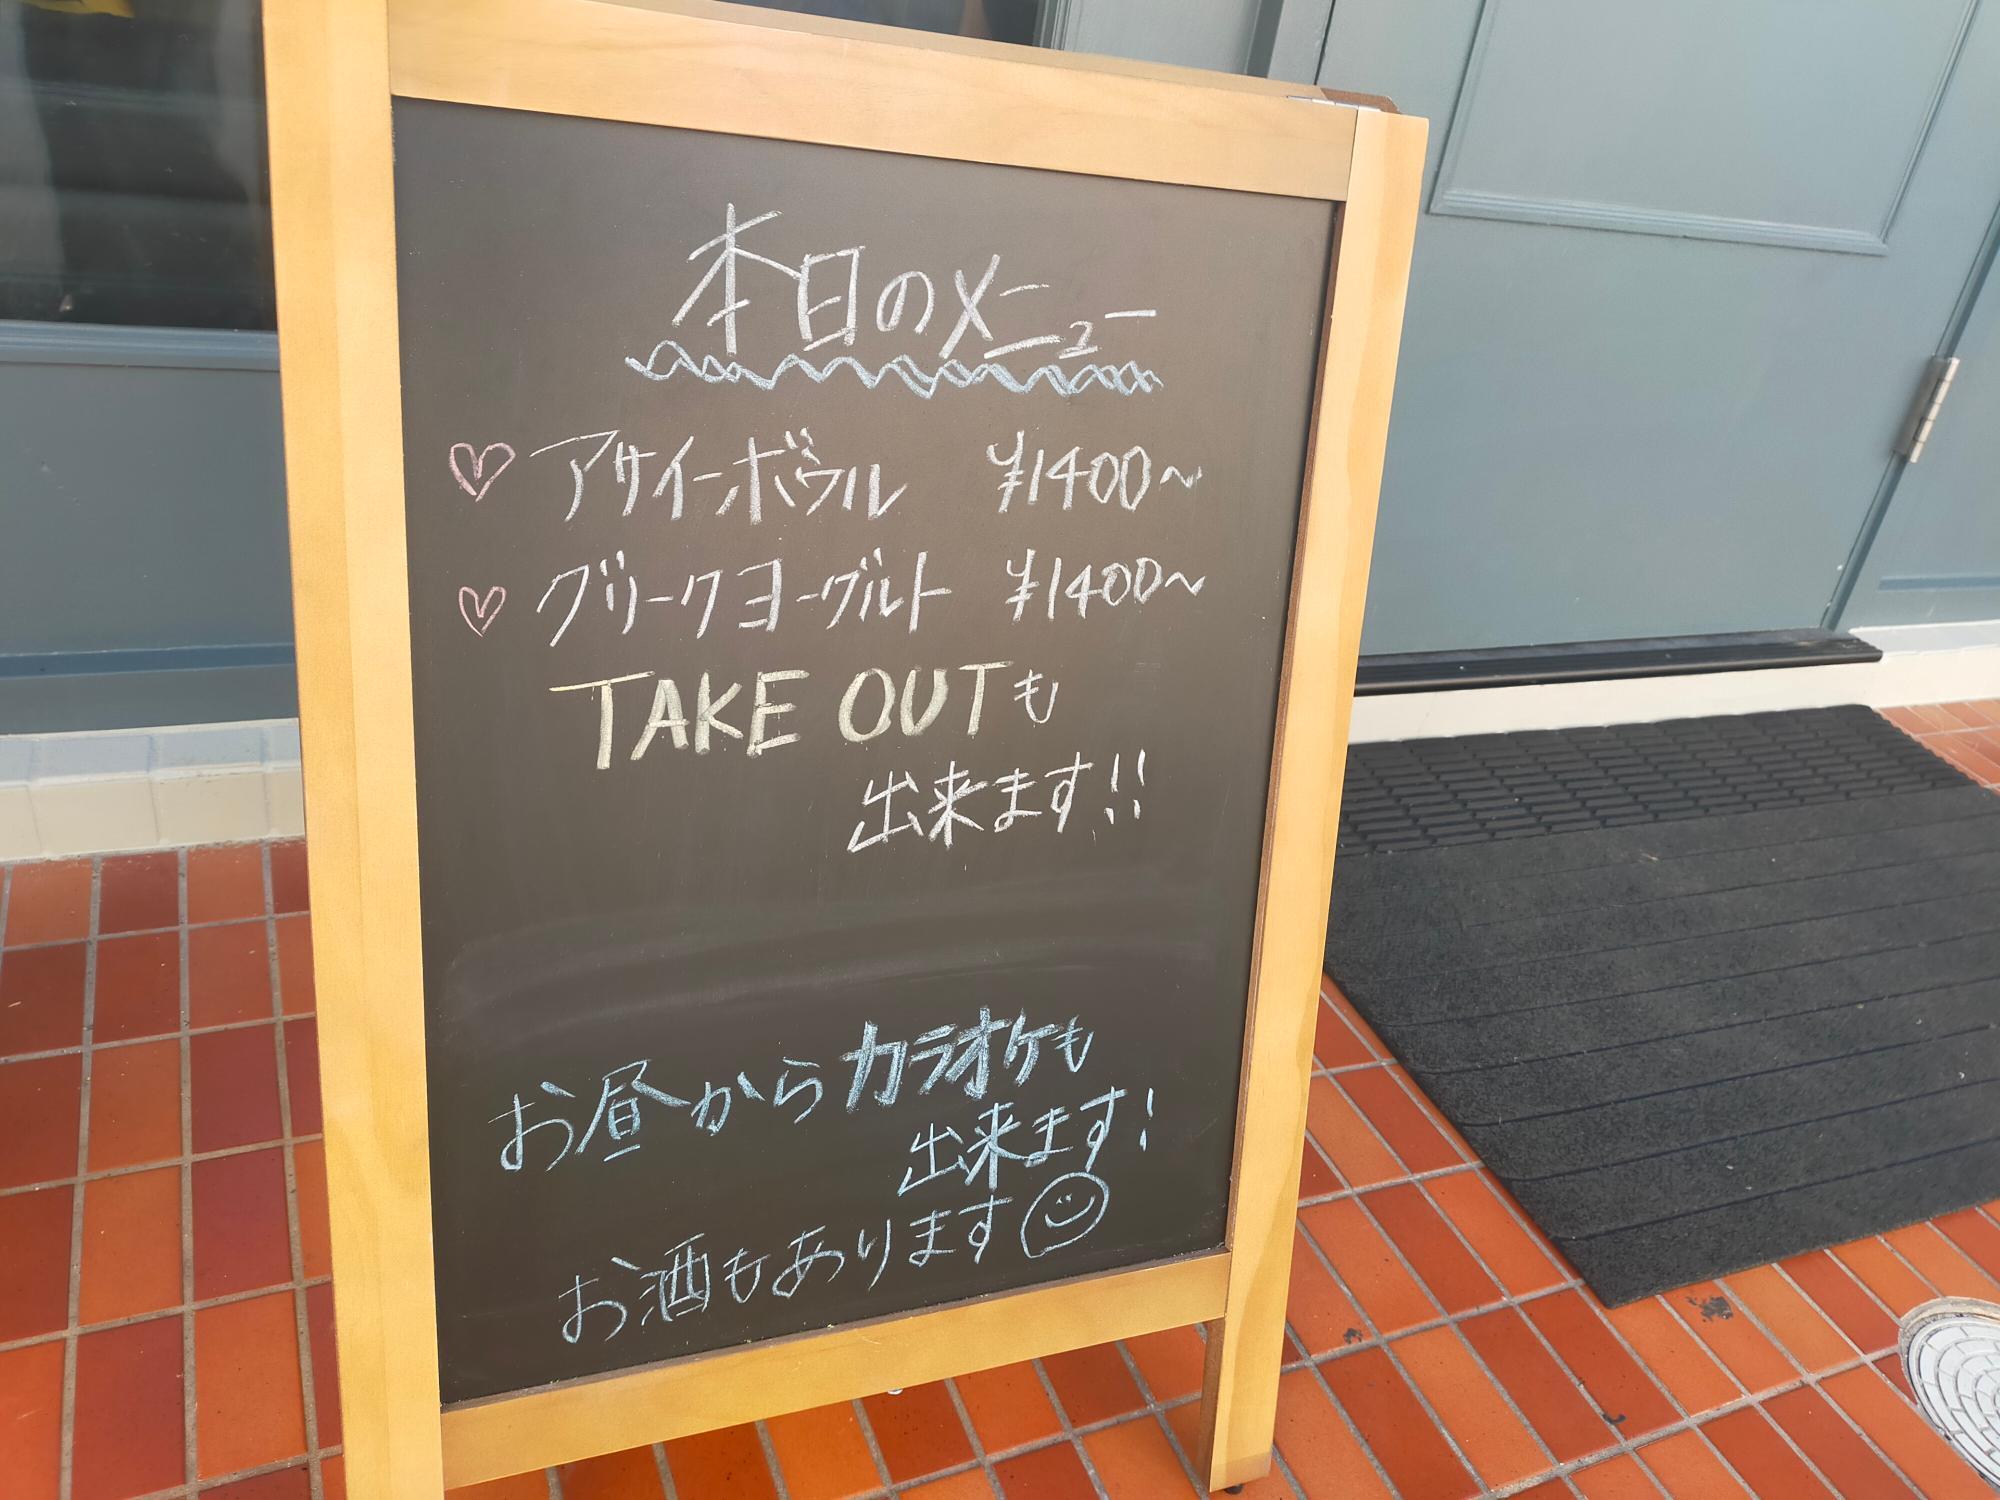 本日のメニュー
♡ アサイーボウル ¥1400~
♡ グリークヨーグルト ¥1400~
TAKE OUTも
出来ます!!
お昼からカラオケも
出来ます!
お酒もあります☺